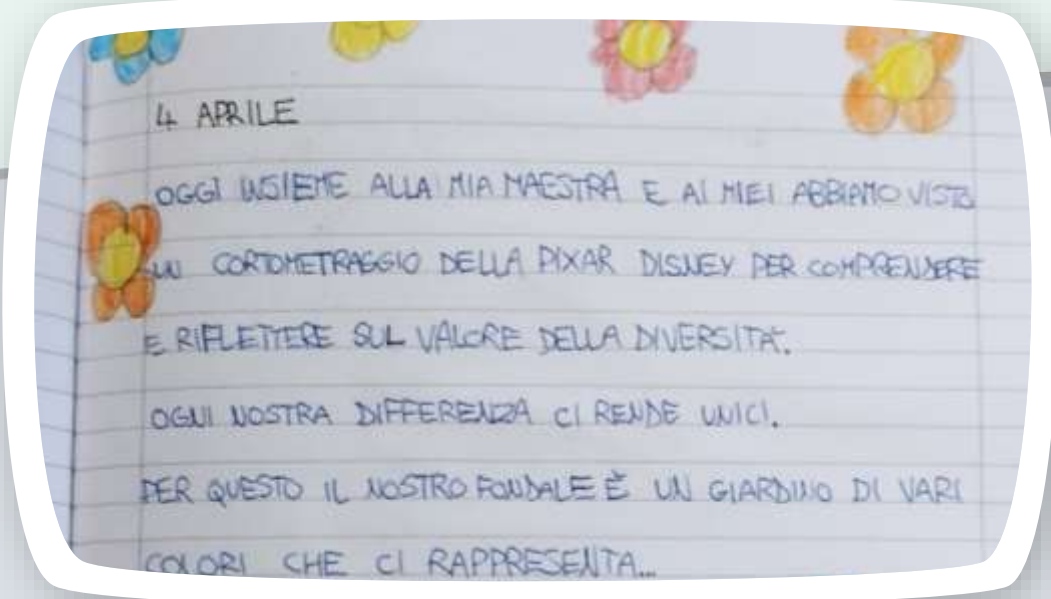 4 APRILE
OGGI INSIEME ALLA MIA MAESTRA E AI MIEI ABBIAMO VISTO
UN CORTOMETRAGGIO DELLA PIXAR DISNEY PER COMPRENDERE
E RIFLETTERE SUL VALORE DELLA DIVERSITÀ.
OGNI NOSTRA DIFFERENZA CI RENDE UNICI.
PER QUESTO IL NOSTRO FONDALE È UN GIARDINO DI VARI
COLORI CHE CI RAPPRESENTA...